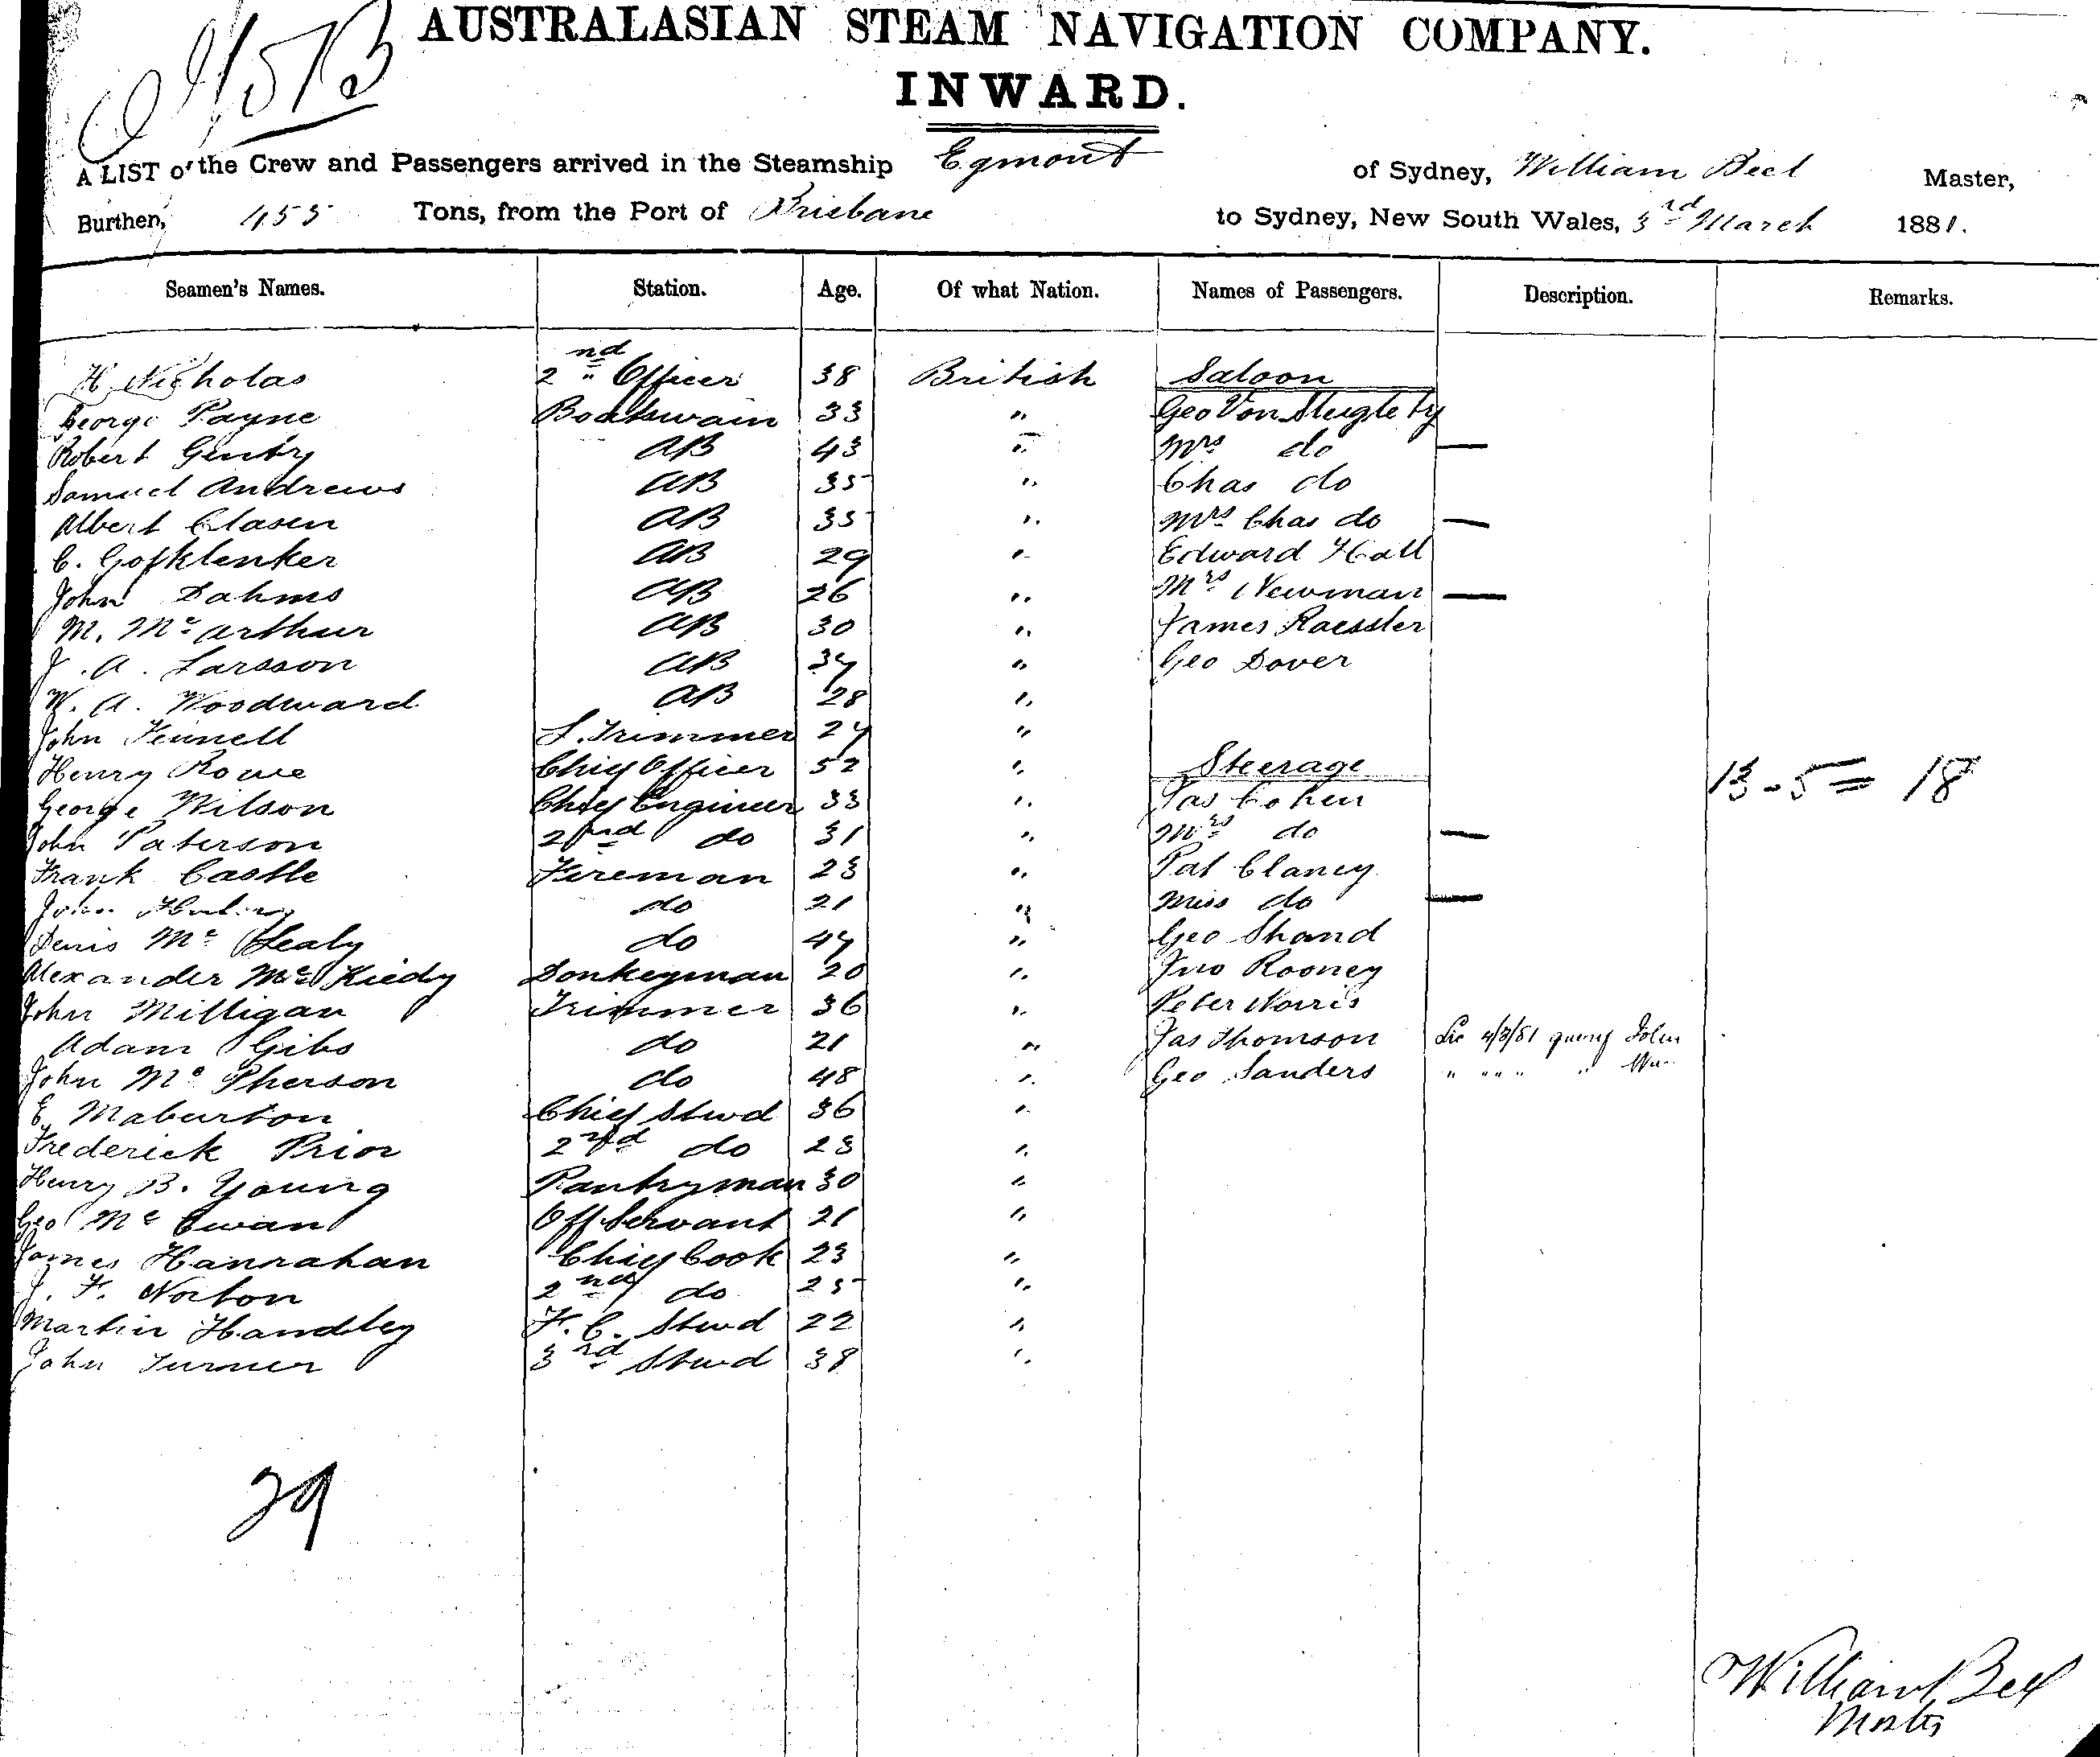 AUSTRALASIAN STEAM NAVIGATION COMPANY.
INWARD.
A LIST of the Crew and Passengers arrived in the Steamship Egmont of Sydney, William Beel Master,
Burthen, 455 Tons, from the Port of Brisbane to Sydney, New South Wales, 3rd March 1881.
Seamen's Names. Station. Age. Of what Nation. Names of Passengers. Description. Remarks.
H Nicholas 2nd Officer 38 British Saloon
George Payne Boatswain 33 " Geo Von
Robert Genty AB 43 " Mrs do —
Samuel Andrews AB 35 " Chas do
Albert Clasen AB 35 " Mrs Chas do —
C. Gofklenker AB 29 " Edward Hall
John Dahms AB 26 " Mrs Newman —
M. Mc Arthur AB 30 " James Raessler
J. A. Larsson AB 34 " Geo Dover
W. A. Woodward AB 28 "
John Fennell S. Trimmer 24 "
Henry Rowe Chief Officer 52 " Steerage
George Wilson Chief Engineer 33 " Jas Cohen 13-5= 18
John Paterson 2nd do 31 " Mrs do —
Frank Castle Fireman 23 " Pat Clancy
John do 21 " Miss do —
Denis Mc Healy do 44 " Geo Shand
Alexander Mc Donkeyman 20 " Jno Rooney
John Milligan Trimmer 36 " Peter Norris
Adam Gibs do 21 " Jas Thomson 4/3/81
John Mc Pherson do 48 " Geo Sanders " " " "
E. Maburton Chief Stwd 36 "
Frederick Prior 2nd do 23 "
Henry B. Young Pantryman 30 "
Geo Mc Ewan Off Servant 21 "
James Hanrahan Chief Cook 23 "
J. F. Norton 2nd do 25 "
Martin Handley F. C. Stwd 22 "
John Turner 3rd Stwd 38 "
29
William Beel
Master